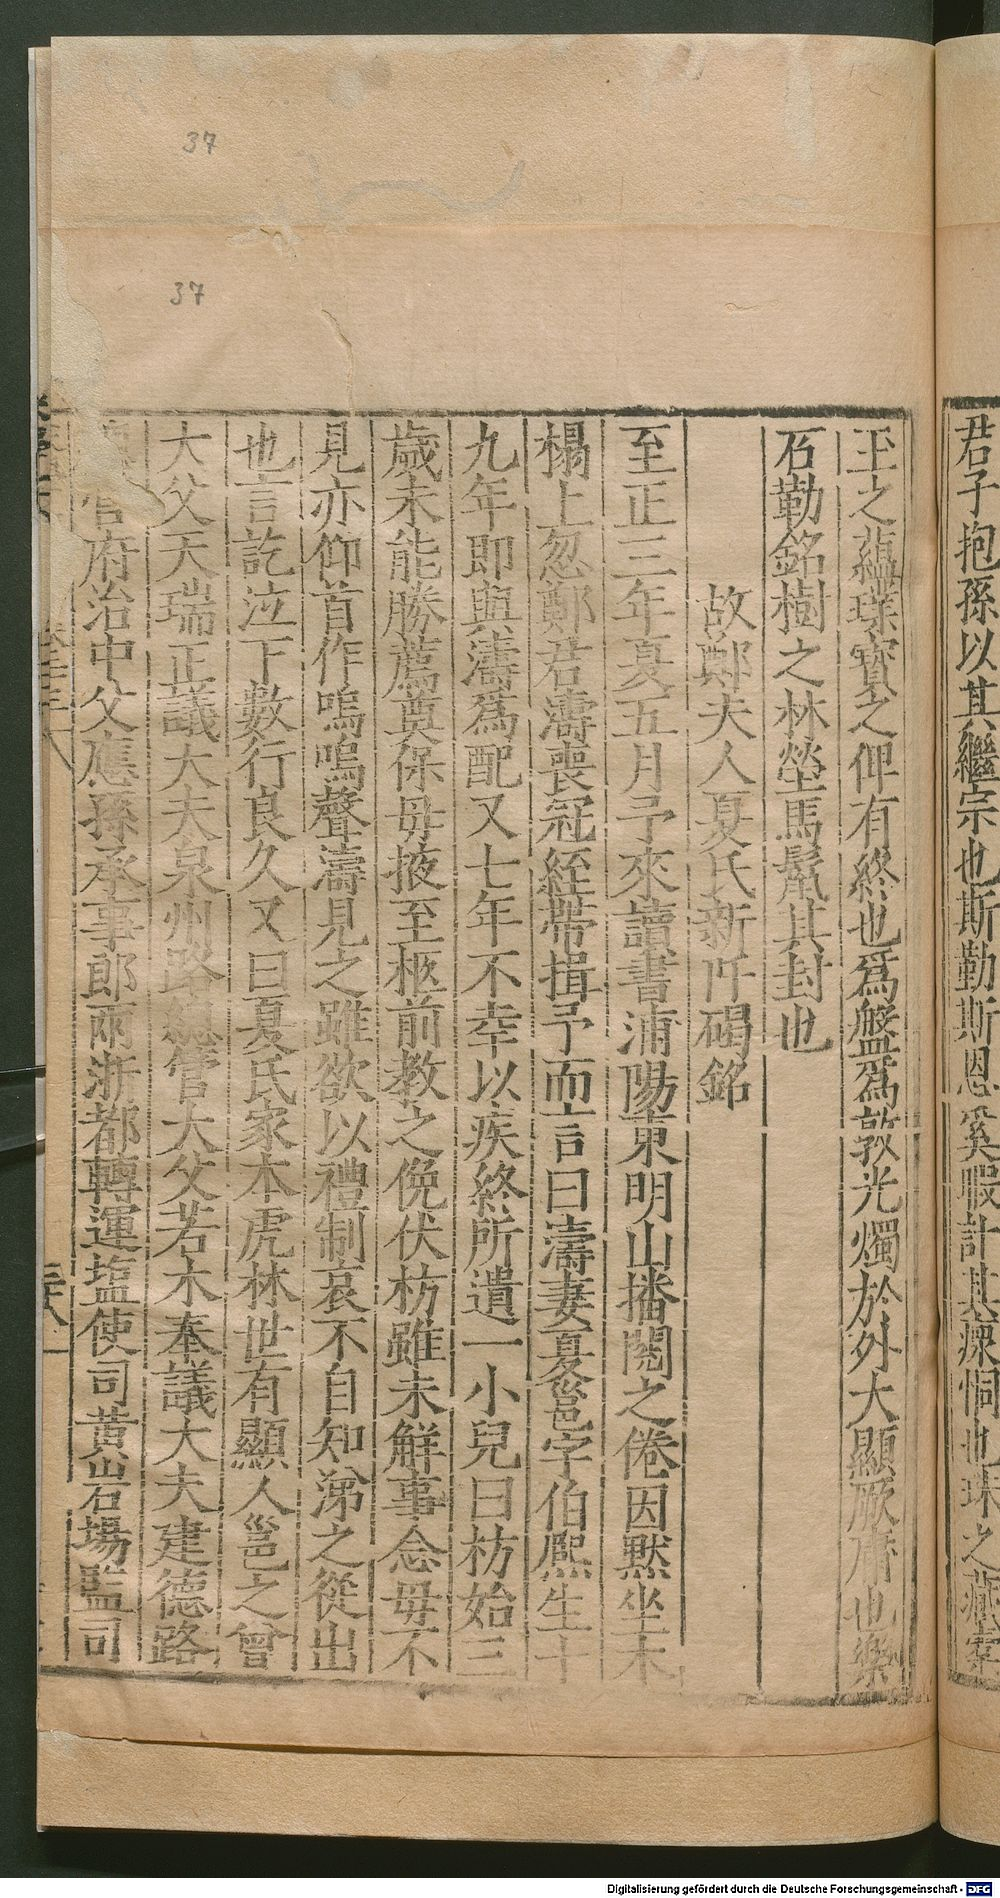 君子抱孫以其繼宗也斯勒斯恩奚暇計其瘝恫也珠之藏
玉之蘊葆寶之俾有終也爲盤爲敦光燭於外大顯厥庸也樂
石勒銘樹之林塋馬鬣其封也
故鄭夫人夏氏新阡碣銘
至正三年夏五月予來讀書浦陽東明山播閱之倦因默坐木
榻上忽鄭君濤喪冠絰帶揖予而言曰濤妻夏邕字伯熈生十
九年即與濤爲配又七年不幸以疾終所遺一小兒曰枋始三
歲未能勝薦奠保毋掖至柩前教之俛伏枋雖未解事念毋不
見亦仰首作嗚嗚聲濤見之雖欲以禮制哀不自知涕之從出
也言訖泣下數行良久又曰夏氏家本虎林世有顯人邕之曾
大父天瑞正議大夫泉州路總管大父若木奉議大夫建德路
管府治中父應孫承事郎兩浙都轉運塩使司黄岩場監司
卷三十八
三八一
37
37
Digitalisierung gefördert durch die Deutsche Forschungsgemeinschaft - DFG